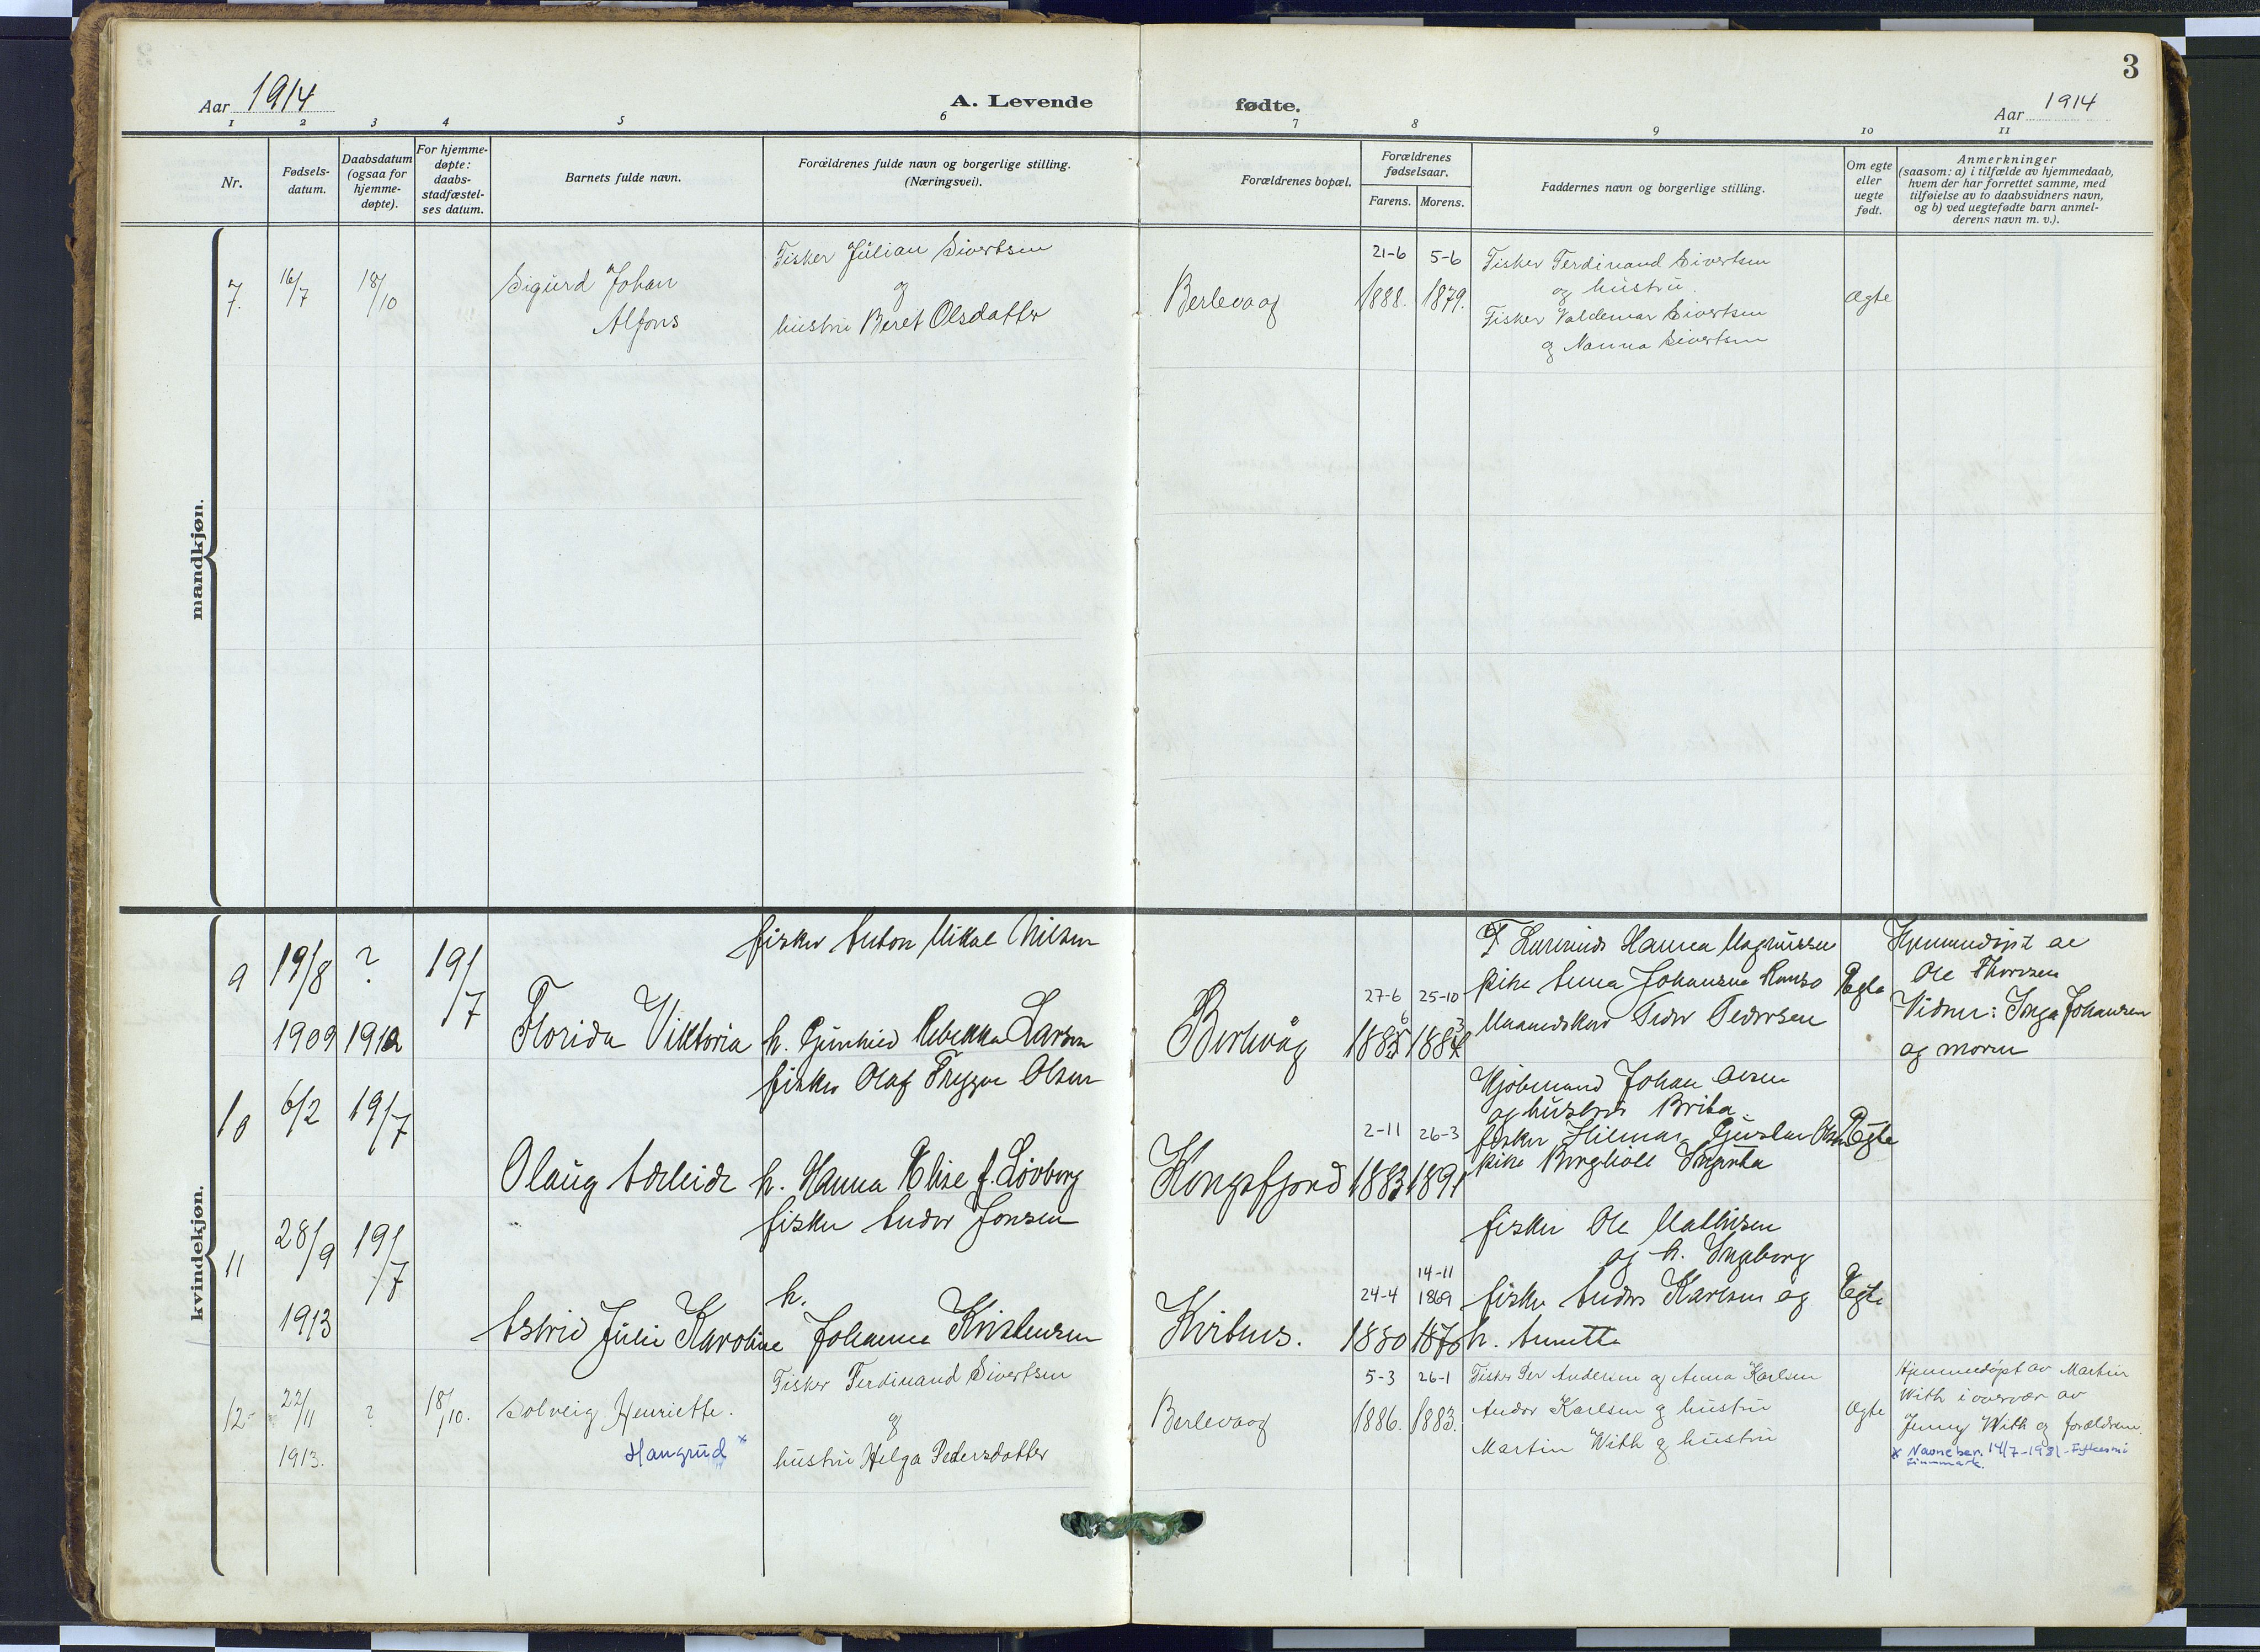 3
Aar 1914
A. Levende
fødte.
Aar 1914
1 2 3 4 5 6 7 8 9 10 11
Nr.
Fødsels-
datum.
Daabsdatum
(ogsaa for
hjemme-
døpte).
For hjemme-
døpte:
daabs-
stadfæstel-
ses datum.
Barnets fulde navn.
Forældrenes fulde navn og borgerlige stilling.
(Næringsvei).
Forældrenes bopæl.
Forældrenes
fødselsaar.
Farens. Morens.
Faddernes navn og borgerlige stilling.
Om egte
eller
uegte
født.
Anmerkninger
(saasom: a) i tilfælde av hjemmedaab,
hvem der har forrettet samme, med
tilføielse av to daabsvidners navn,
og b) ved uegtefødte barn anmel-
derens navn m. v.).
mandkjøn.
7.
16/7
18/10
Sigurd Johan
Alfons
Fisker Julian Sivertsen
og
hustru Beret Olsdatter
Berlevaag
21-6
1888.
5-6
1879.
Fisker Ferdinand Sivertsen
og hustru.
Fisker Valdemar Sivertsen
og Nanna Sivertsen
Ægte
kvindekjøn.
9
19/8
1909
?
1912
19/7
Florida Viktoria
fisker Anton Mikal Nilsen
h. Gunhild Rebekka Larsen
Berlevåg
27-6
1885 6
25-10
1884 3
Hanna Magnussen
pike Anna Johansen
Peder Pedersen
Ægte
Hjemmedøpt av
Ole Thorsen
Vidner: Inga Johansen
og moren
10
6/2
19/7
Olaug Adeleide
fisker Olaf Trygve Olsen
h. Hanna Elise f. Løvborg
Kongsfjord
2-11
1883
26-3
1891
Kjøbmand Johan Olsen
og hustru Brita
fisker Hilmar Gustav Olsen
pike Borghild
Ægte
11
28/9
1913
19/7
Astrid Julie Karoline
fisker Andor Jonsen
h.
Johanna Kristensen
24-4
1880
14-11
1869
1878
fisker Ole Mathisen
og h. Ingeborg
fisker Anders Karlsen og
h. Annette
Ægte
12
22/11
1913.
?
18/10.
Solveig Henriette.
Haugrud x
Fisker Ferdinand Sivertsen
og
hustru Helga Pedersdatter
Berlevaag
5-3
1886.
26-1
1883.
Fisker Per Andersen og Anna Karlsen
Andor Karlsen og hustru
Martin With og hustru
Ægte
Hjemmedøpt av Martin
With i overvær av
Jenny With og forældrene.
x Navnebev. 14/7-1981-
Finnmark.